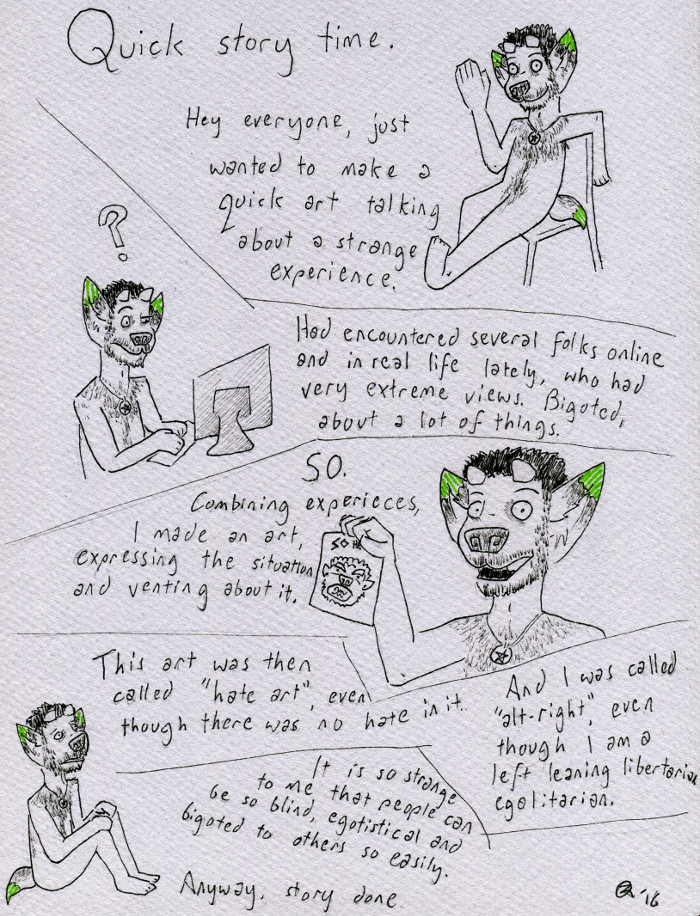 Quick story time.
Hey everyone, just
wanted to make a
quick art talking
about a strange
experience.
?
Had encountered several folks online
and in real life lately, who had
very extreme views. Bigoted,
about a lot of things.
SO.
Combining experieces,
I made an art,
expressing the situation
and venting about it.
SO
This art was then
called "hate art", even
though there was no hate in it.
And I was called
"alt-right", even
though I am a
left leaning libertarian
egalitarian.
It is so strange
to me that people can
be so blind, egotistical and
bigoted to others so easily.
Anyway, story done
'16